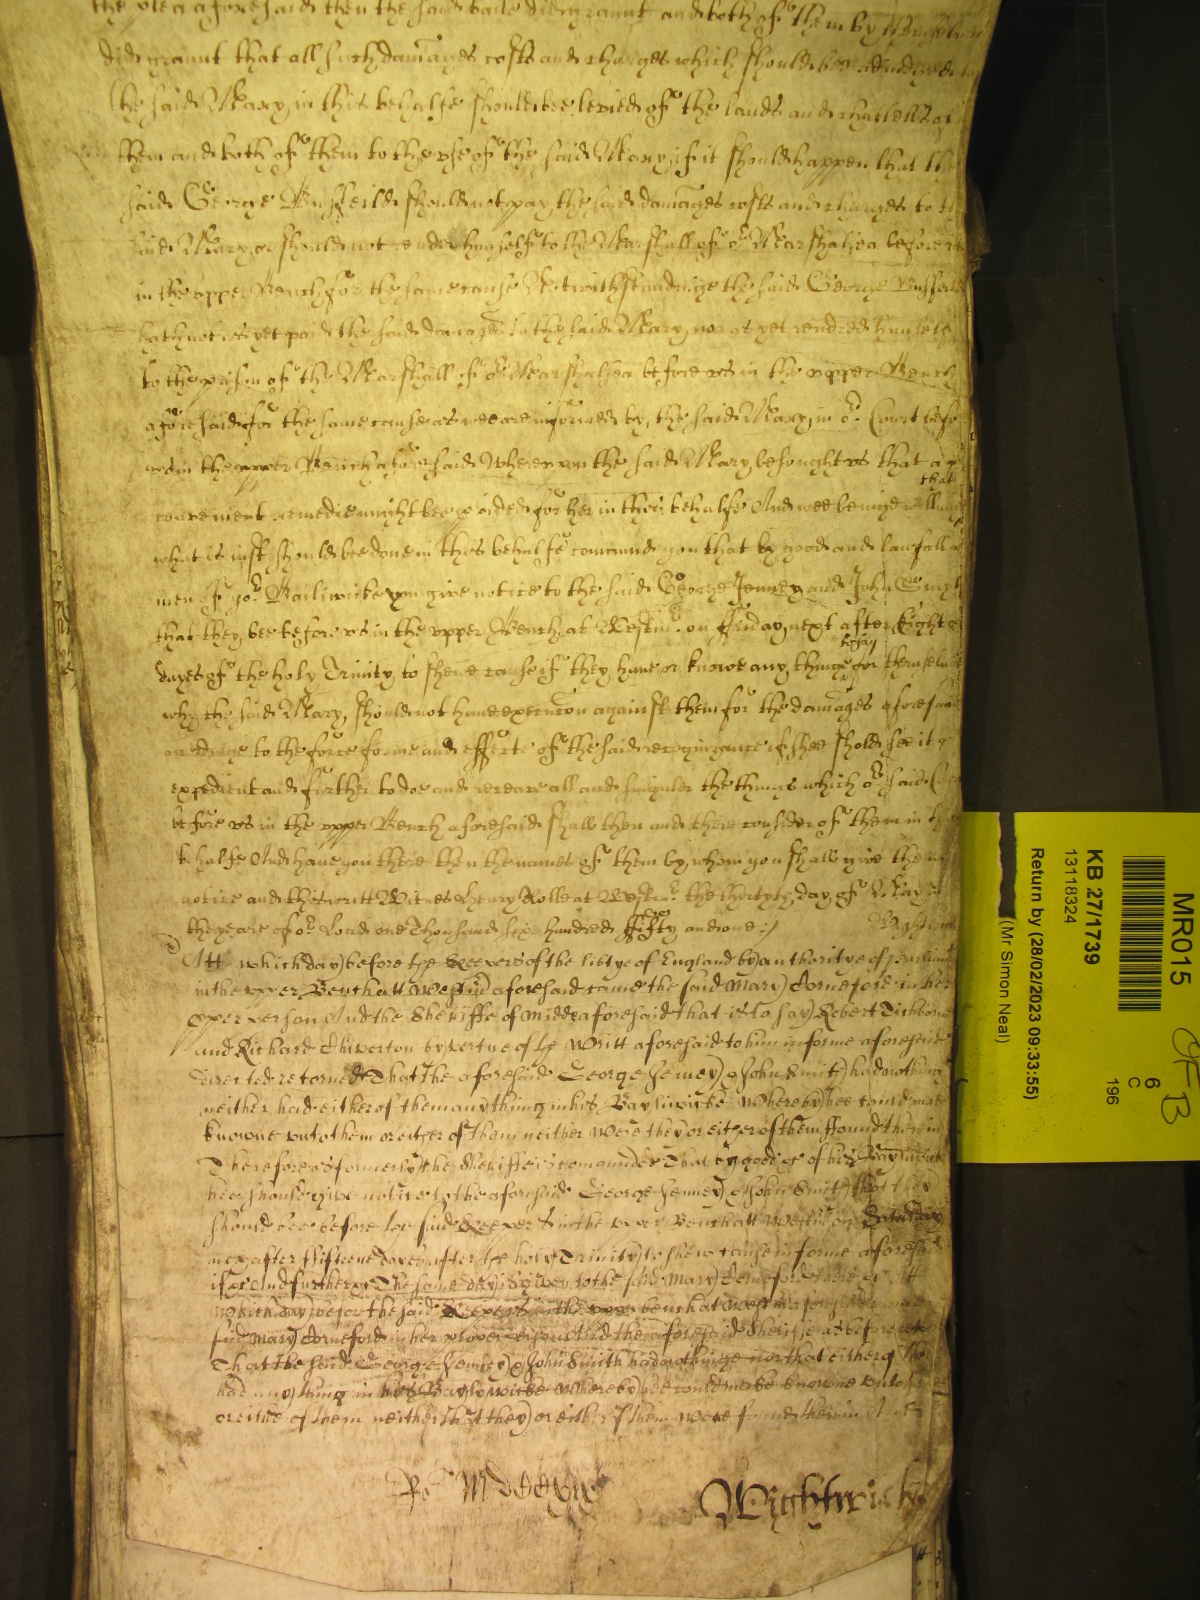 the plea aforesaid then the said baile did graunt and both of them by themselves
did graunt that all such damages costs and charges which should bee adiudged to
the said Mary in this behalfe should bee levied of the lands and chattells of
them and both of them to the use of the said Mary if it should happen that the
said George Busfeild should not pay the said damages costs and charges to the
said Mary or should not render himselfe to the Marshall of or Marshalsea before us
in the upper Bench for the same cause Notwithstandinge the said George Busfeild
hath not as yet paid the said damages to the said Mary nor as yet rendred himselfe
to the prison of the Marshall of or Marshalsea before us in the upper Bench
aforesaid for the same cause as wee are informed by the said Mary in or Court befo
us in the upper Bench aforesaid Whereupon the said Mary besought us that a
convenient remedie might bee pvided for her in this behalfe And wee beinge willinge that
what is iust should bee done in this behalfe comaund you that by good and lawfull
men of yor Bailiwicke you give notice to the said George Jenney and John Smyth
that they bee before us in the upper Bench at Westmr on ffriday next after Eight
dayes of the holy Trinity to shewe cause if they have or knowe any thinge to say for themselves
why the said Mary should not have execucon against them for the damages aforesaid
accordinge to the force forme and effecte of the said recognizance if shee shold see it
expedient and further to doe and receave all and singuler the things which or said Co
before us in the upper Bench aforesaid shall then and there consider of them in th
behalfe And have you there then the names of them by whom you shall give them
notice and this writt Witnes Henry Rolle at Westmr the thirtyth day of May in
the yeare of or Lord one Thousand six hundred fifty and one Wightwick
Att which day before the Keepers of the libtye of England by authoritye of parliamt
in the upper Bench att Westmr aforesaid came the said Mary Corneford in her
pper person And the Sheriffe of Middx aforesaid that is to say Robert Tichborne
and Richard Chiverton by vertue of the Writt aforesaid to him in forme aforesaid
directed retorned That the aforesaid George Jenney & John Smith had nothing
neither had either of them any thing in his Bayliwicke Whereby hee could make
knowne unto them or either of them neither were they or either of them ffound therein
Therefore as formerly the Sheriffe is comaunded That by good &c of his Bayliwicke
hee should give notice to the aforesaid George Jenney & John Smith that they
should bee before the said Keepers &c in the upper Bench att Westmr on Saturday
next after ffifteene dayes after the holy Trinity to shew cause in forme aforesd
if &c And further &c The same day is given to the said Mary Corneford there &c Att
which day before the said Keepers in the upper bench at Westmr aforesaid came
said Mary Corneford in her proper person And the aforesaid Sheriffe as before
That the said George Jenney & John Smith had nothinge nor hat either of them
had any thing in his Baylywicke Whereby hee could make knowne unto them
or either of them neither that they or either of them were found therein
Ro
Wightwick
MR015
6
C
196
KB 27/1739
13118324
Return by (28/02/2023 09:33:55)
(Mr Simon Neal)